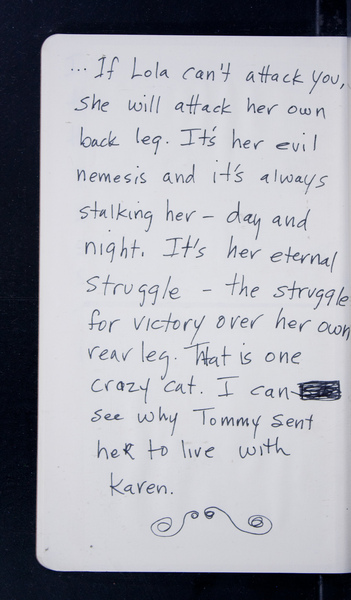 ... If Lola can't attack you,
she will attack her own
back leg. It's her evil
nemesis and it's always
stalking her – day and
night. It's her eternal
struggle – the struggle
for victory over her own
rear leg. That is one
crazy cat. I can
see why Tommy sent
her to live with
Karen.